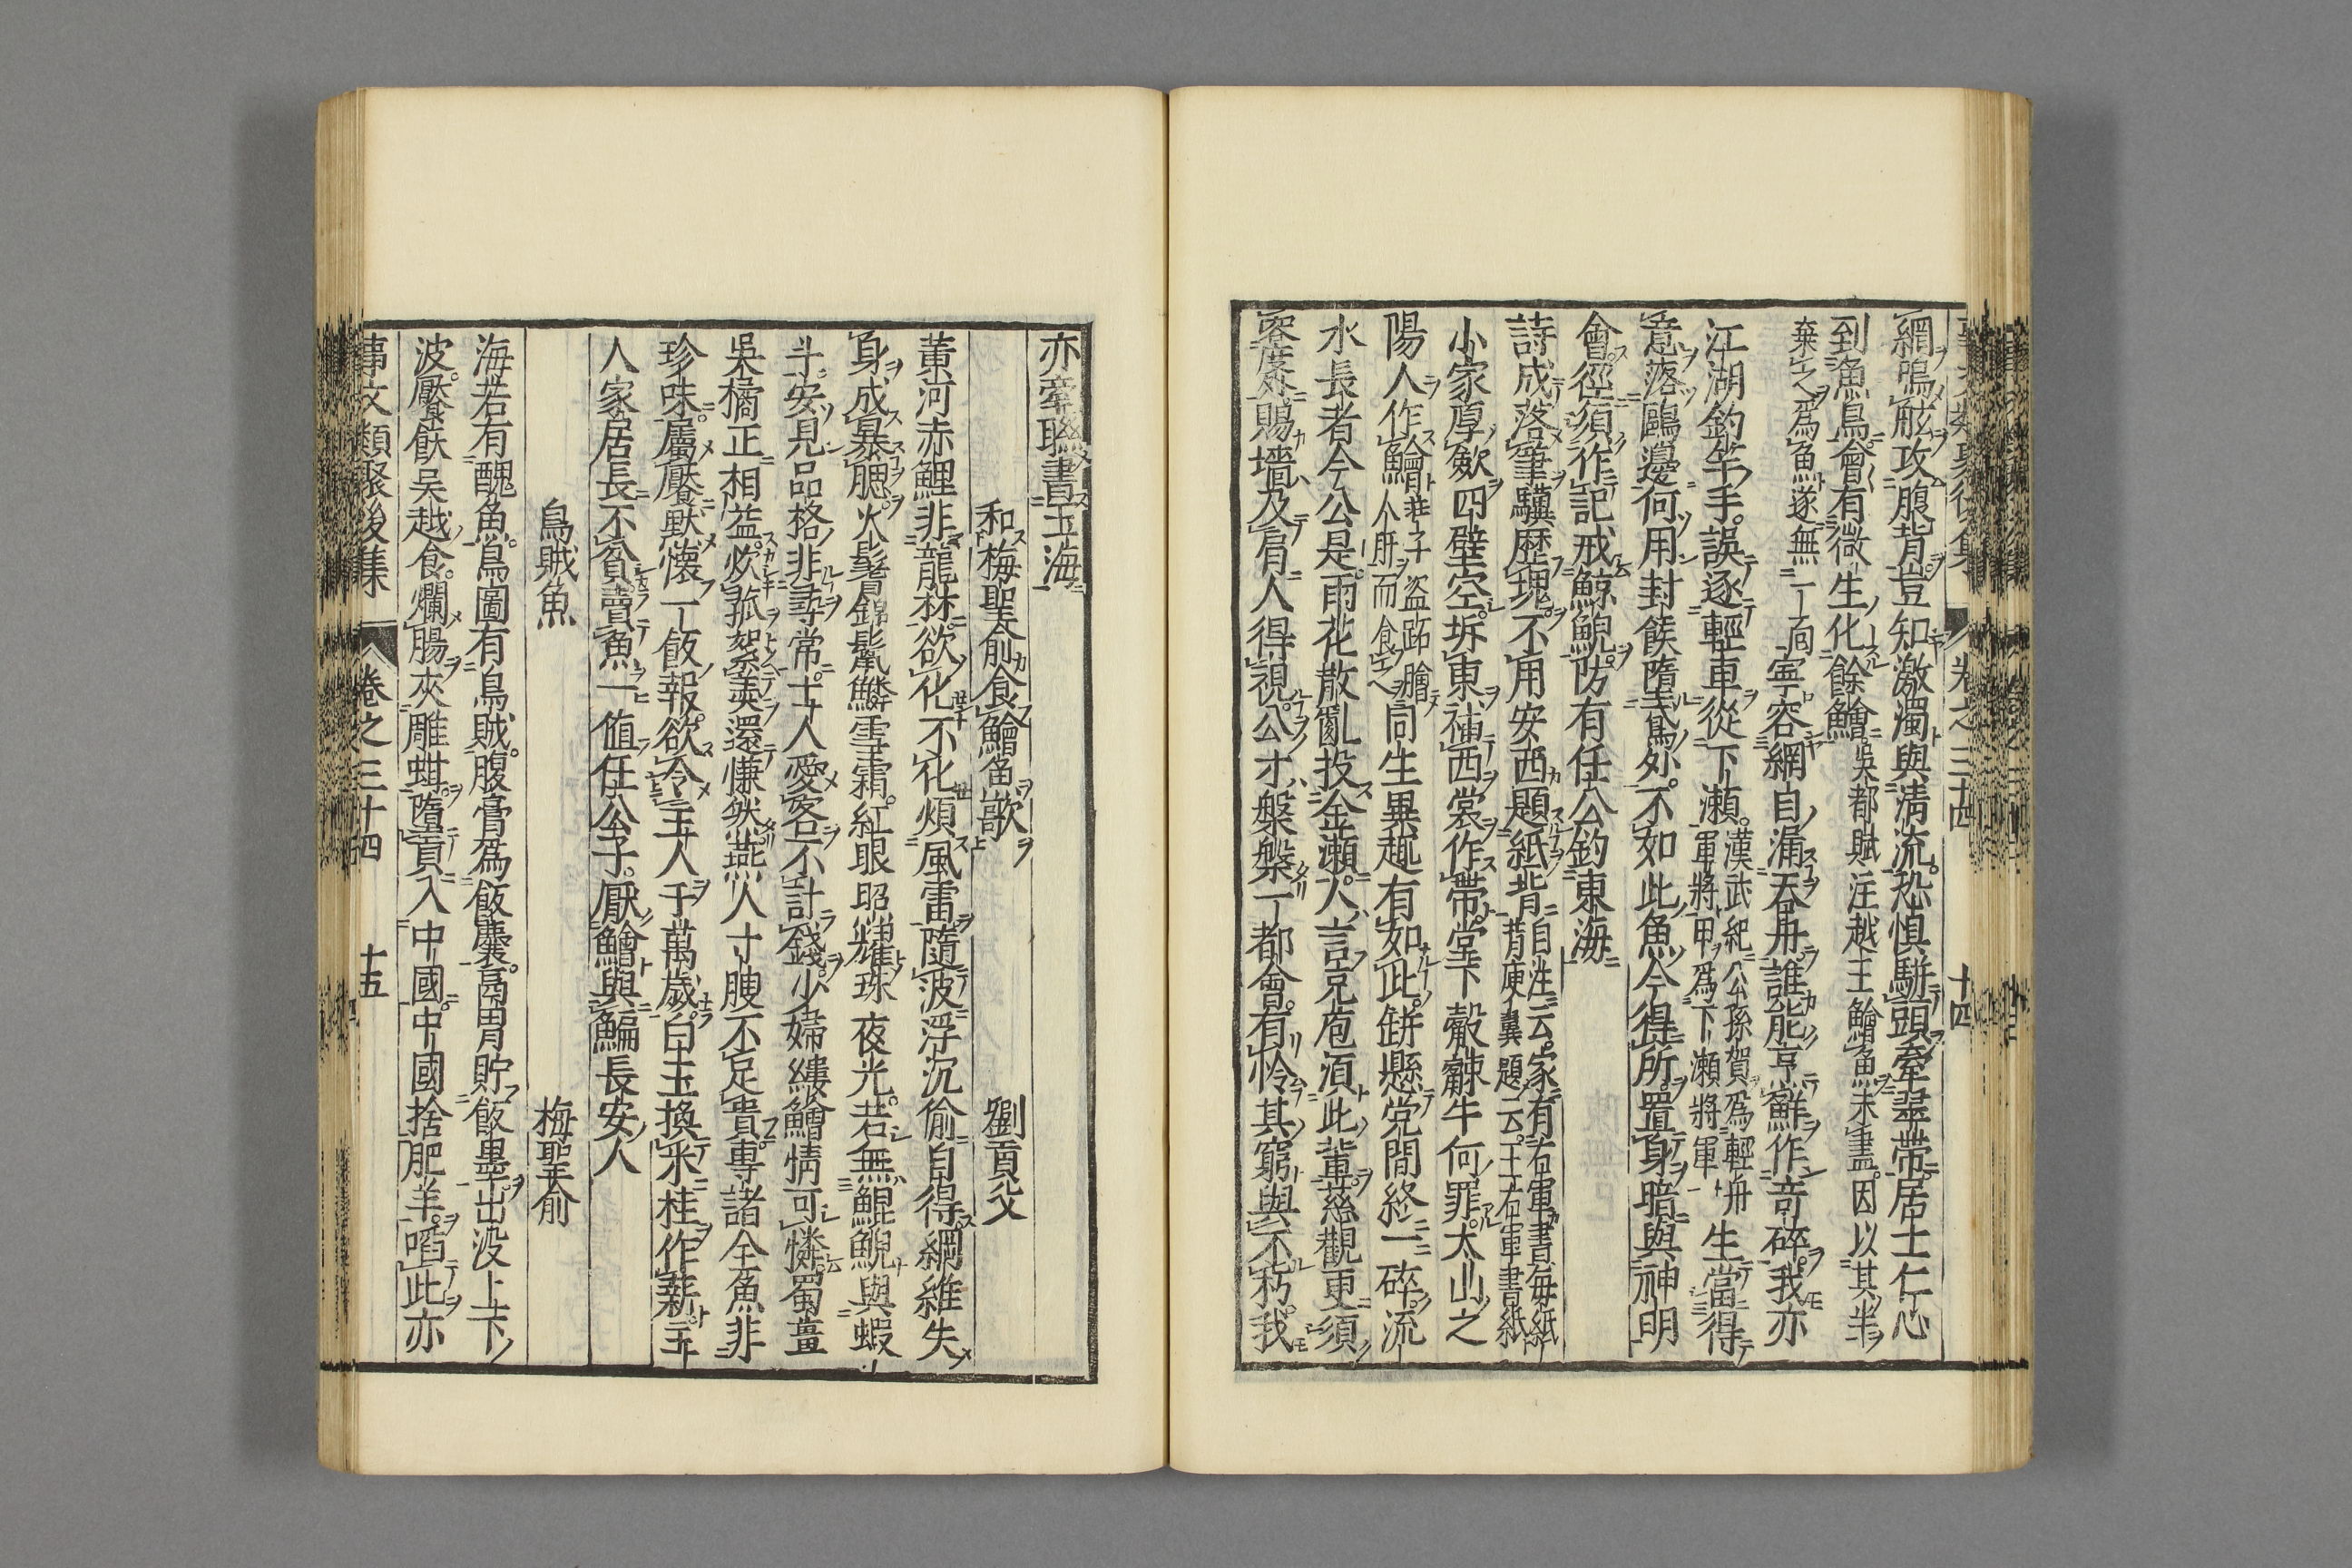 網鳴舷攻腹背豈知激濁與淸流恐懼駢頭牽翠帶居士仁心
到魚鳥會有微生化餘鱠吳都賦注越王鱠魚未盡因以其半
棄之爲魚遂無一面寧容網自漏呑舟誰能烹鮮作奇碎我亦
江湖釣竿手誤逐輕車從下瀨漢武紀公孫賀爲輕車將軍甲爲下瀨將軍生當得
意落鷗邊何用封侯墮鳶外不如此魚今得所置身暗與神明
會徑須作記戒鯨鯢防有任公釣東海
詩成落筆驥歷塊不用安西題紙背自注云家有右軍書每紙背庾翼題云王右軍書紙
小家厚斂四壁空拆東補西裳作帶堂下觳觫牛何罪太山之
陽人作鱠莊子盜跖膾人肝而食之同生異趣有如此缾懸党間終一碎流
水長者今公是雨花散亂投金瀨人言充庖須此輩慈觀更須
容度外賜墻及肩人得視公才槃槃一都會有怜其窮與不朽我
亦牽聯書玉海
和梅聖俞食鱠魚歌 劉貢父
黃河赤鯉非龍材欲化不化煩風雷隨波浮沉偷自得網維失
身成暴腮火鬐錦鬣鱗雪霜紅眼照耀珠夜光若無鯤鯢與蝦
斗安見品格非尋常士人愛客不計錢少婦縷鱠情可憐蜀薑
吳橘正相益炊菰絮羹還慊然燕人寸膄不足貴專諸全魚非
珍味屬饜默懷一飯報欲令主人千萬歲白玉換米桂作薪主
人家居長不貧賣魚一値任公子厭鱠與鯿長安人
烏賊魚 梅聖俞
海若有醜魚烏圖有烏賊腹膏爲飯囊鬲胃貯飯墨出沒上下
波饜飫吳越食爛腸夾雕蚶隨貢入中國中國捨肥羊啗此亦
事文類聚後集 卷之三十四 十五